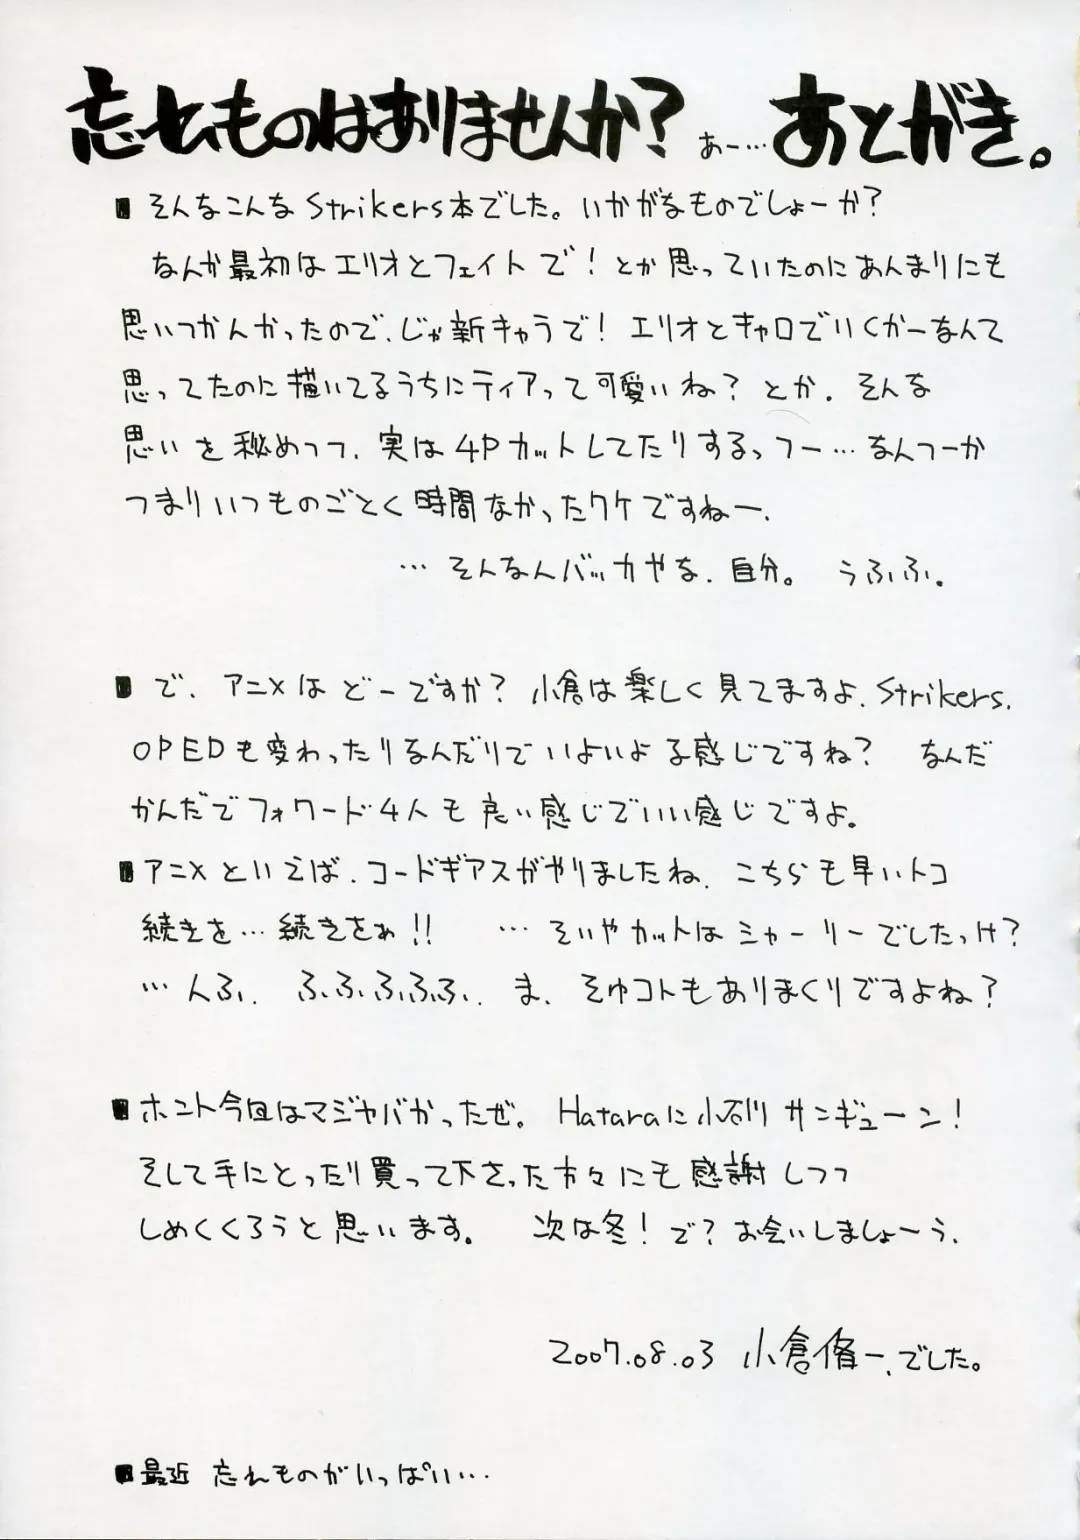 忘れものはありませんか? あー… あとがき。
■ そんなこんな Strikers本でした。いかがなものでしょーか?
なんか最初は エリオとフェイト で! とか思っていたのにあんまりにも
思いつかんかったので、じゃ新キャラで! エリオとキャロでいくかーなんて
思ってたのに描いてるうちにティアって可愛いね? とか、そんな
思いを秘めつつ、実は4Pカットしてたりするっつー…なんつーか
つまりいつものごとく時間なかったワケですねー、
… そんなんバッカやな、自分。 うふふ。
■ で、アニメは どーですか? 小倉は楽しく見てますよ、Strikers.
OPEDも変わったりなんだりでいよいよな感じですね? なんだ
かんだでフォワード4人も良い感じでいい感じですよ。
■アニメといえば、コードギアスがやりましたね、こちらも早いトコ
続きを…続きをぉ!! … そいやカットはシャーリーでしたっけ?
… んふ、ふ、ふ、ふ、ふ、ふ、ま、そゆコトもありまくりですよね?
■ホント今回はマジヤバかったぜ。Hataraに小石川 サンギューン!
そして手にとったり買って下さった方々にも感謝しつつ
しめくくろうと思います。 次は冬! で? お会いしましょーう、
2007.08.03 小倉脩一、でした。
■最近 忘れものがいっぱい…